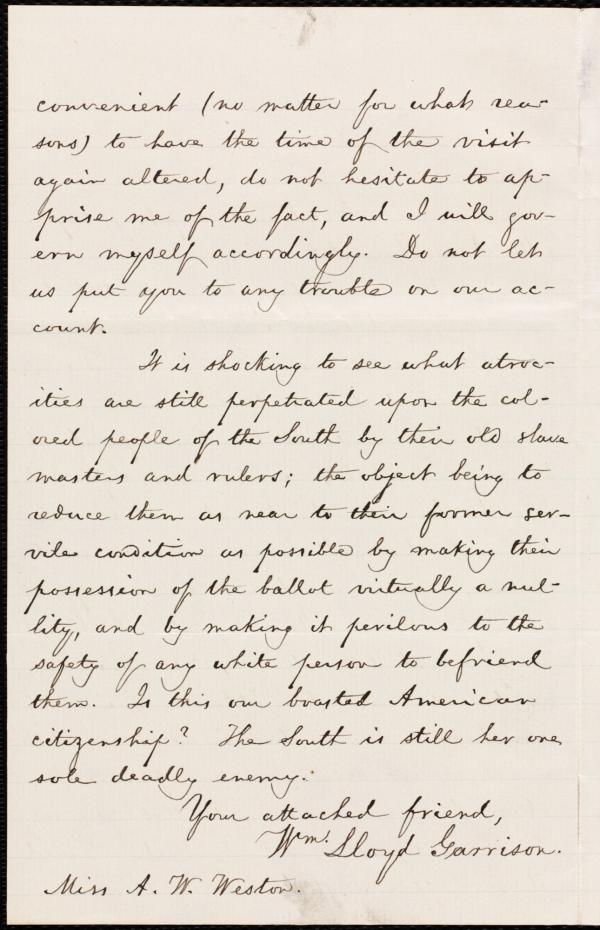 convenient (no matter for what rea-
sons) to have the time of the visit
again altered, do not hesitate to ap-
prise me of the fact, and I will gov-
ern myself accordingly. Do not let
us put you to any trouble on our ac-
count.
It is shocking to see what atroc-
ities are still perpetrated upon the col-
ored people of the South by their old slave
masters and rulers; the object being to
reduce them as near to their former ser-
vile condition as possible by making their
possession of the ballot virtually a nul-
lity, and by making it perilous to the
safety of any white person to befriend
them. Is this our boasted American
citizenship? The South is still her one
sole deadly enemy.
Your attached friend,
Wm. Lloyd Garrison.
Miss A. W. Weston.